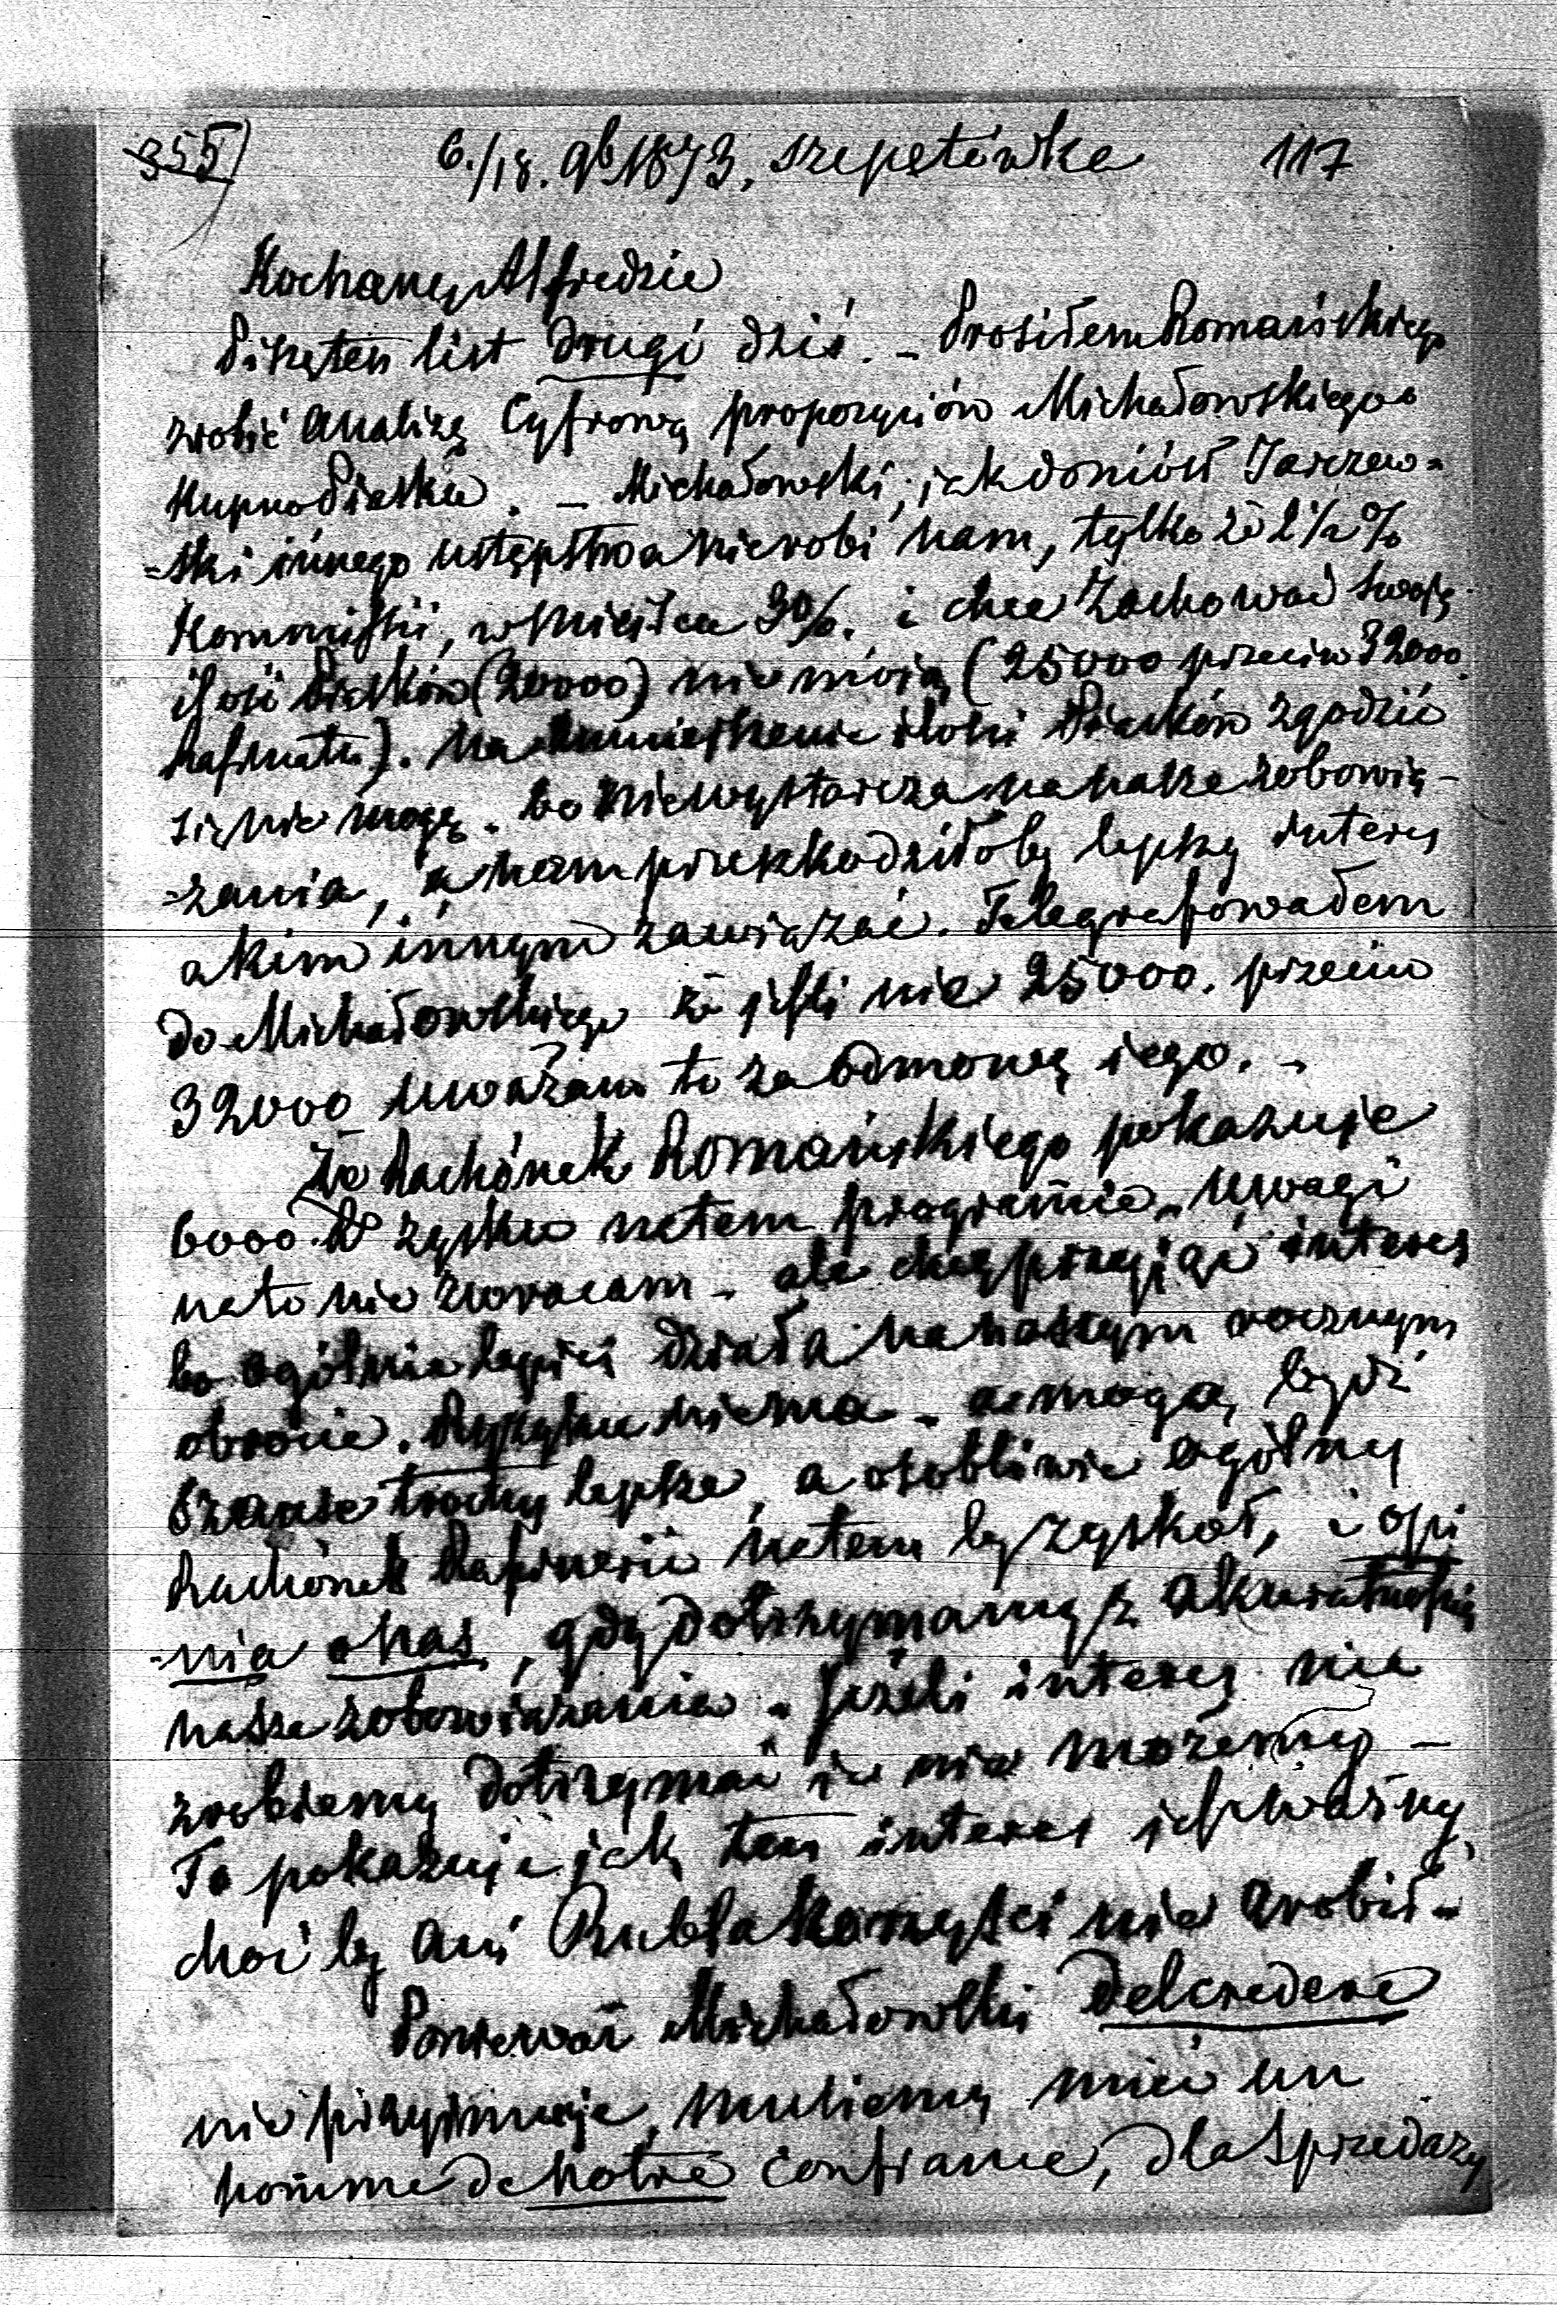 355) 6./18. 9b 1873. Szepetówka 117
Kochany Alfredzie
Piszę ten list drugi dziś. – Prosiłem Romańskiego
zrobić analizę Cyfrową propozyciów Michałowskiego o
Kupno Piasku. – Michałowski, jak doniósł Jarczew-
-ski innego ustępstwa nierobi nam, tylko że 2½ %
Kommissii, w miejsca 3%. i chce zachować swoję
ilość Piasków (20000) nie moią (25000 przeciw 32000
Rafinatu). Na zmniejszenie ilości Piasków zgodzić
się nie mogę. bo niewystarcza na nasze zobowią-
-zania, a nam przeszkodziłoby lepszy interes
z kim innym zawiązać. Telegrafowałem
do Michałowskiego że jeśli nie 25000. przeciw
32000 uważam to za odmowę iego. –
Że Rachónek Romańskiego pokazuje
6000 R zysku natem programie – uwagi
nato nie zwracam – ale chcę przyjąć interes
bo ogólnie lepiej działa na naszym rocznym
obrocie. Ryzyku niema – a mogą bydź
Szanse trochę lepsze, a osobliwie ogólny
Rachónek Rafinerii natem by zyskał, i opi
-nia o nas, gdy dotrzymamy z akuratnością
nasze zobowiązania. Jeżeli interes nie
zrobiemy dotrzymać ie nie możemy –
To pokazuje jak ten interes jest ważny,
choć by ani Rubla korzyści nie zrobił –
Ponieważ Michałowski Delcredere
nie przyimuje, musiemy mieć un
homme de notre confiance, dla Sprzedaży